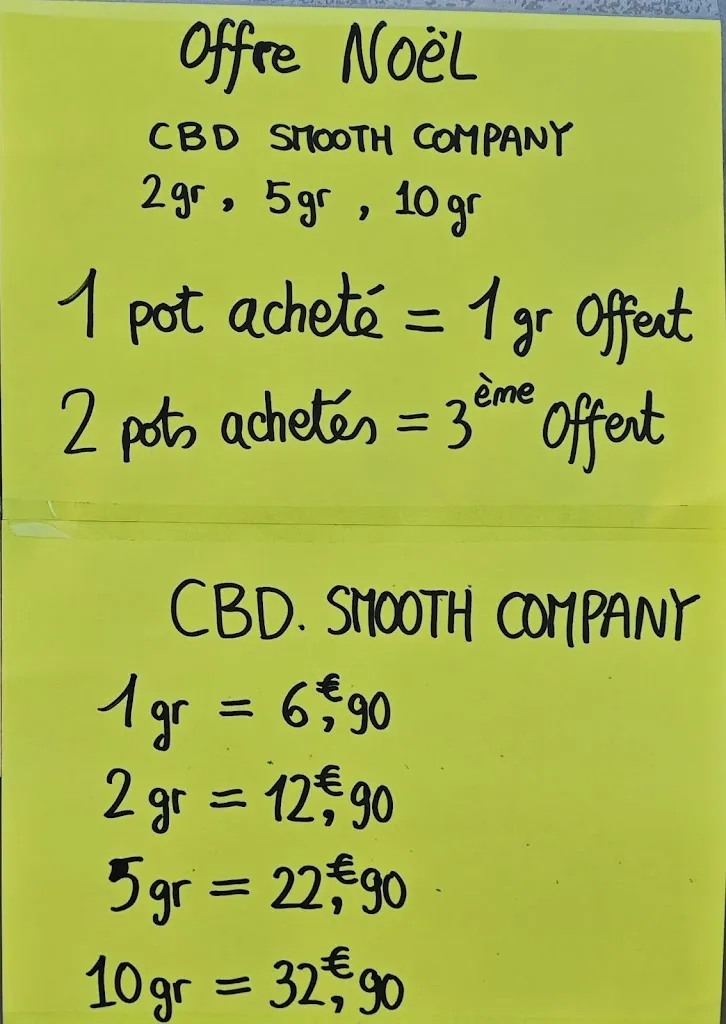 Offre NOËL
CBD SMOOTH COMPANY
2gr, 5gr, 10gr
1 pot acheté = 1 gr Offert
2 pots achetés = 3ème Offert
CBD. SMOOTH COMPANY
1 gr = 6,€90
2 gr = 12,€90
5 gr = 22,€90
10 gr = 32,€90